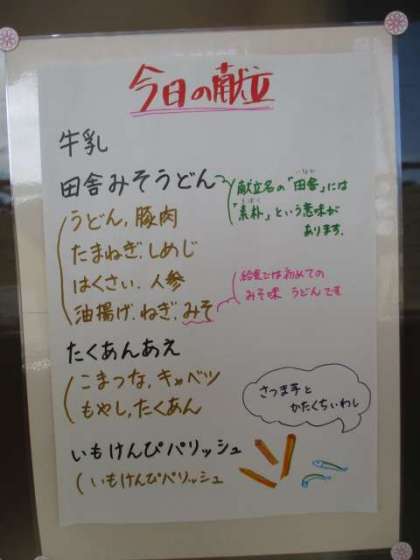 今日の献立
牛乳
田舎みそうどん
献立名の「田舎」には
いなか
「素朴」という意味が
そぼく
あります。
うどん,豚肉
たまねぎ.しめじ
はくさい.人参
油揚げ.ねぎ.みそ
給食では初めての
みそ味 うどんです
たくあんあえ
こまつな,キャベツ
もやし,たくあん
さつま芋と
かたくちいわし
いもけんぴパリッシュ
(いもけんぴパリッシュ